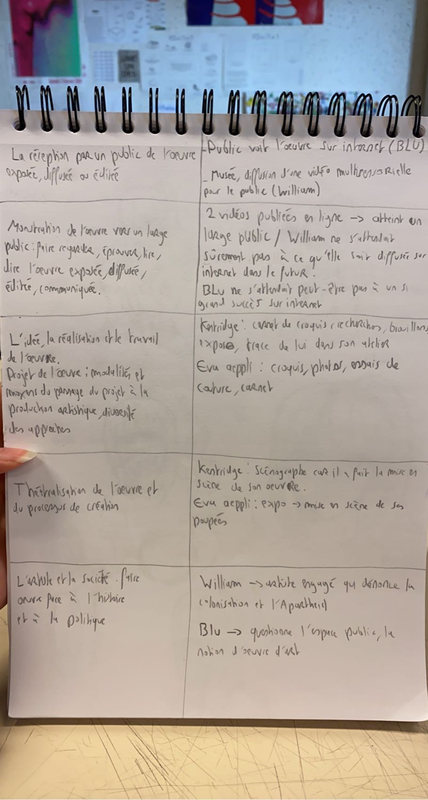 La réception par un public de l'oeuvre
exposée, diffusée ou éditée
- Public voit l'oeuvre sur internet (BLU)
- Musée, diffusion d'une vidéo multisensorielle
pour le public (William)
Monstration de l'oeuvre vers un large
public : faire regarder, éprouver, lire,
dire l'oeuvre exposée, diffusée,
éditée, communiquée.
2 vidéos publiées en ligne → atteint un
large public / William ne s'attendait
sûrement pas à ce qu'elle soit diffusée sur
internet dans le futur.
BLU ne s'attendait peut-être pas à un si
grand succès sur internet
L'idée, la réalisation et le travail
de l'oeuvre.
Projet de l'oeuvre : modalités et
moyens du passage du projet à la
production artistique, diversité
des approches
Kentridge : carnet de croquis, recherches, brouillons
exposé, trace de lui dans son atelier
Eva aeppli : croquis, photos, essais de
couture, carnet
Théâtralisation de l'oeuvre et
du processus de création
Kentridge : Scénographe car il fait la mise en
scène de son oeuvre.
Eva aeppli : expo → mise en scène de ses
poupées
L'artiste et la société : faire
oeuvre face à l'histoire
et à la politique
William → artiste engagé qui dénonce la
colonisation et l'Apartheid
Blu → questionne l'espace public, la
notion d'oeuvre d'art